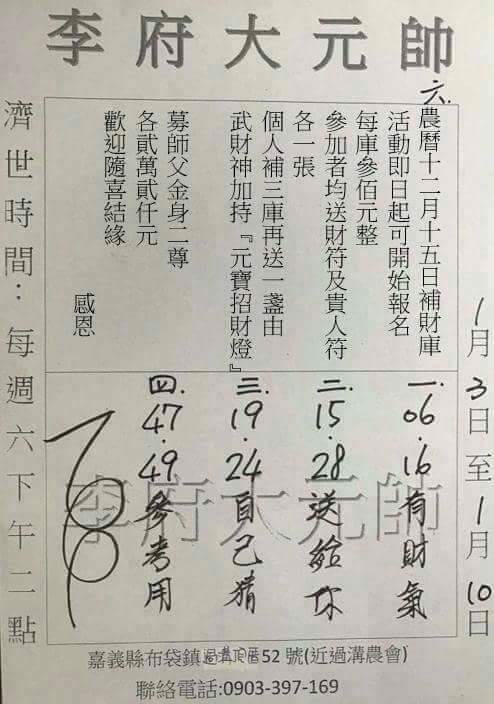 李府大元帥
六.
農曆十二月十五日補財庫
活動即日起可開始報名
每庫參佰元整
參加者均送財符及貴人符
各一張
個人補三庫再送一盞由
武財神加持『元寶招財燈』
募師父金身二尊
各貳萬貳仟元
歡迎隨喜結緣
感恩
1月3日至1月10日
濟世時間：每週六下午二點
李府大元帥
一. 06.16有財氣
二. 15.28送給你
三. 19.24自己猜
四. 47.49參考用
嘉義縣布袋鎮52號(近過溝農會)
聯絡電話:0903-397-169